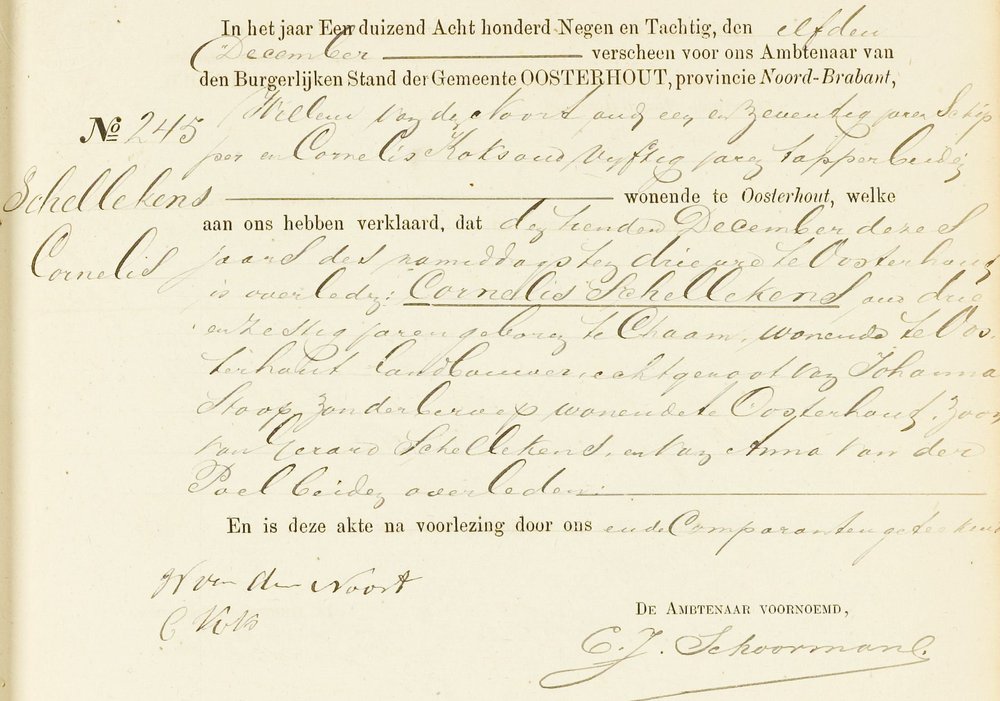 In het jaar Een duizend Acht honderd Negen en Tachtig, den elfden
December verscheen voor ons Ambtenaar van
den Burgerlijken Stand der Gemeente OOSTERHOUT, provincie Noord-Brabant,
No 245
Willem van de Noort oud een en zeventig jaren Schip
per en Cornelis Koks oud vyftig jaren tapper beiden
Schellekens
wonende te Oosterhout, welke
aan ons hebben verklaard, dat den tienden December dezes
Cornelis
jaars des namiddags ten drie ure te Oosterhout
is overleden: Cornelis Schellekens oud drie
en zestig jaren geboren te Chaam, wonende te Oos
terhout Landbouwer, echtgenoot van Johanna
Stoop zonder beroep wonende te Oosterhout, zoon
van Gerard Schellekens, en van Anna van der
Poel beiden overleden.
En is deze akte na voorlezing door ons en de Comparanten geteekend
W van den Noort
C Koks
DE AMBTENAAR VOORNOEMD,
C. J. Schoormans.